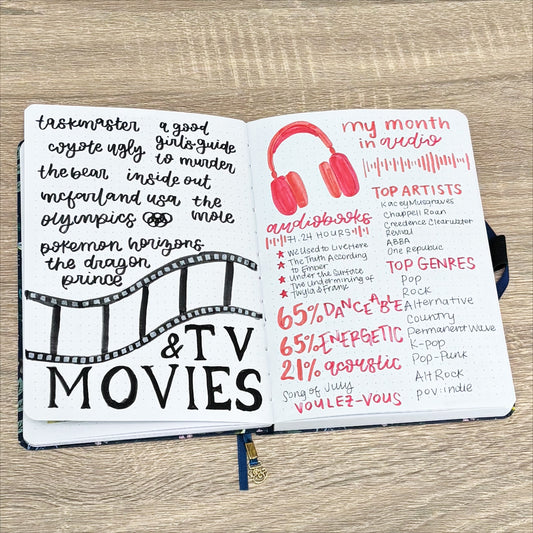 taskmaster
a good
girls guide
to murder
coyote ugly
the bear
inside out
mcfarland usa
the
mole
olympics
pokemon horizons
the dragon
prince
& TV
MOVIES
my month
in audio
audiobooks
71.24 HOURS
We Used to Live Here
The Truth According
to Ember
Under the Surface
The Undermining of
Twyla & Frank
65% DANCEABLE
65% ENERGETIC
21% acoustic
song of July
VOULEZ-VOUS
TOP ARTISTS
Kacey Musgraves
Chappell Roan
Creedence Clearwater
Revival
ABBA
One Republic
TOP GENRES
Pop
Rock
Alternative
Country
Permanent Wave
K-pop
Pop-Punk
Alt Rock
pov: indie